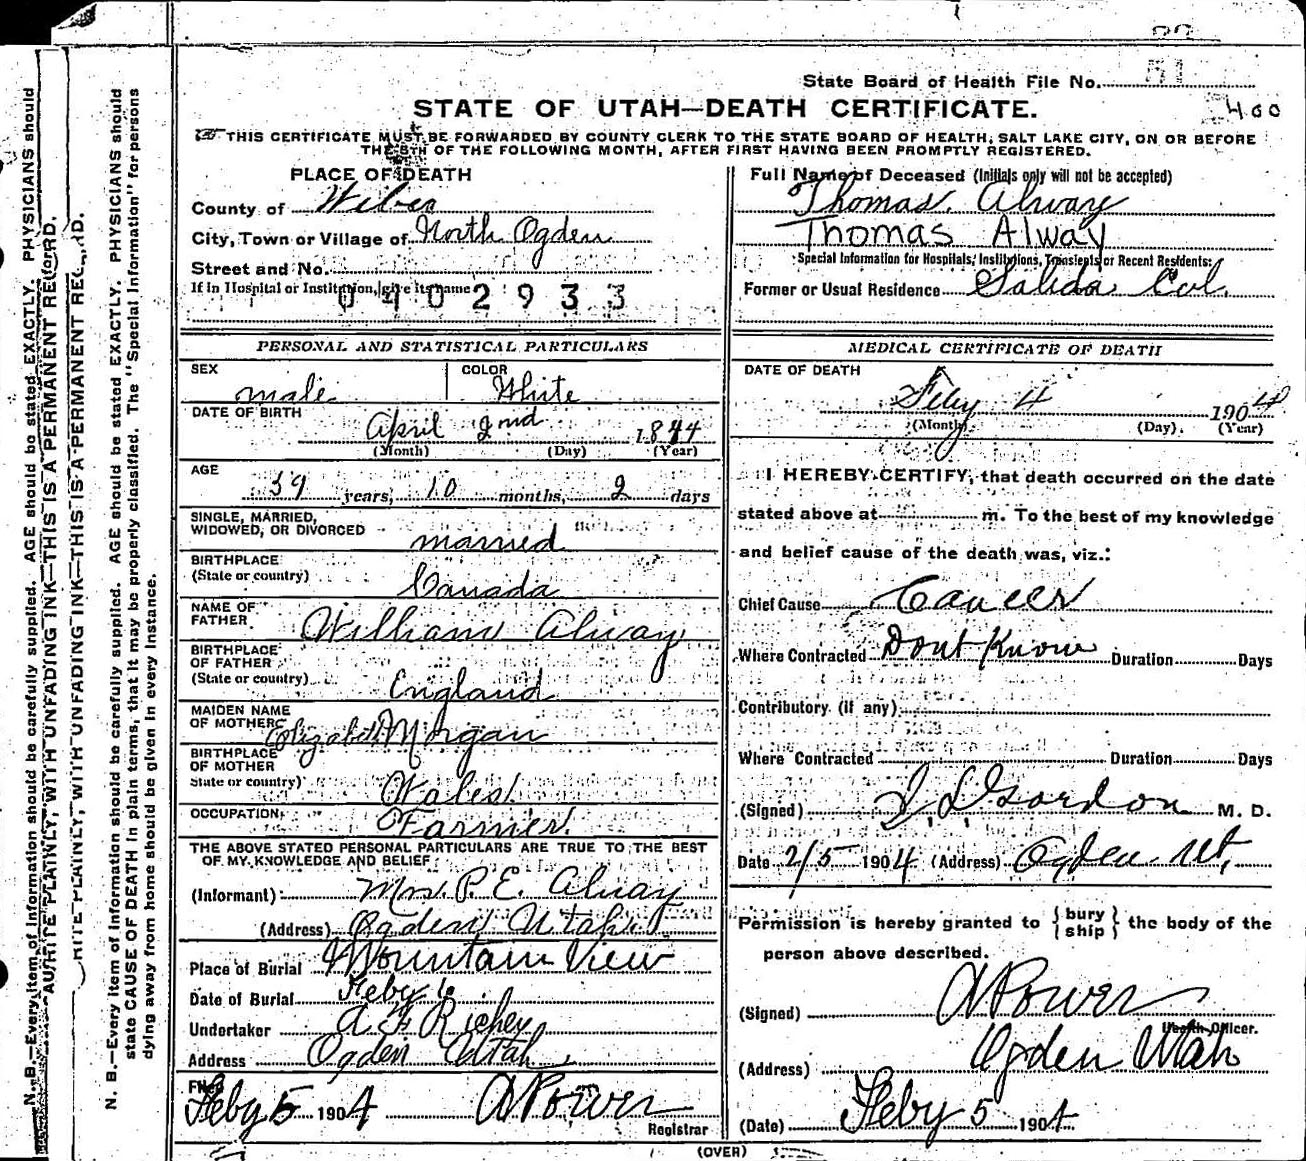 State Board of Health File No. 51
STATE OF UTAH—DEATH CERTIFICATE.
400
THIS CERTIFICATE MUST BE FORWARDED BY COUNTY CLERK TO THE STATE BOARD OF HEALTH, SALT LAKE CITY, ON OR BEFORE
THE 5TH OF THE FOLLOWING MONTH, AFTER FIRST HAVING BEEN PROMPTLY REGISTERED.
PLACE OF DEATH
County of Weber
City, Town or Village of North Ogden
Street and No.
If in Hospital or Institution, give its name
0402933
Full Name of Deceased (Initials only will not be accepted)
Thomas Alway
Thomas Alway
Special Information for Hospitals, Institutions, Transients or Recent Residents:
Former or Usual Residence Salida Col.
PERSONAL AND STATISTICAL PARTICULARS
SEX male
COLOR White
DATE OF BIRTH
April 2nd 1844
(Month) (Day) (Year)
AGE
59 years, 10 months, 2 days
SINGLE, MARRIED,
WIDOWED, OR DIVORCED married
BIRTHPLACE
(State or country) Canada
NAME OF
FATHER William Alway
BIRTHPLACE
OF FATHER
(State or country) England
MAIDEN NAME
OF MOTHER Elizabeth Morgan
BIRTHPLACE
OF MOTHER
State or country) Wales
OCCUPATION Farmer
THE ABOVE STATED PERSONAL PARTICULARS ARE TRUE TO THE BEST
OF MY KNOWLEDGE AND BELIEF
(Informant) Mrs. P. E. Alway
(Address) Ogden Utah
Place of Burial Mountain View
Date of Burial Feby 6
Undertaker A F Richey
Address Ogden Utah
Filed
Feby 5 1904 A Power
Registrar
MEDICAL CERTIFICATE OF DEATH
DATE OF DEATH
Feby 4 1904
(Month) (Day) (Year)
I HEREBY CERTIFY, that death occurred on the date
stated above at m. To the best of my knowledge
and belief cause of the death was, viz.:
Chief Cause Cancer
Where Contracted Dont Know Duration Days
Contributory (if any)
Where Contracted Duration Days
(Signed) Gordon M. D.
Date 2/5 1904 (Address) Ogden Ut.
Permission is hereby granted to { bury ship } the body of the
person above described.
(Signed) A Power
Health Officer.
(Address) Ogden Utah
(Date) Feby 5 1904
(OVER)
N. B.—Every item of information should be carefully supplied. AGE should be stated EXACTLY. PHYSICIANS should
WRITE PLAINLY, WITH UNFADING INK—THIS IS A PERMANENT RECORD.
WRITE PLAINLY, WITH UNFADING INK—THIS IS A PERMANENT RECORD.
N. B.—Every item of information should be carefully supplied. AGE should be stated EXACTLY. PHYSICIANS should
state CAUSE OF DEATH in plain terms, that it may be properly classified. The "Special Information" for persons
dying away from home should be given in every instance.